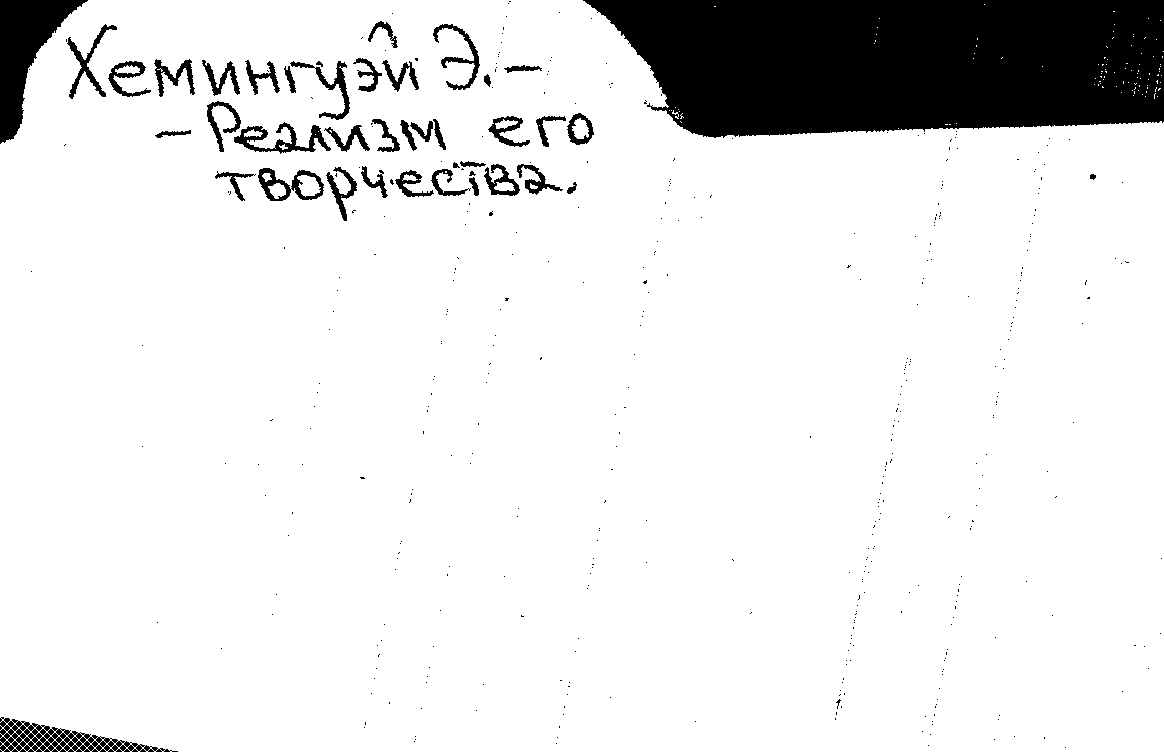 Хемингуэй Э. –
– Реализм его
творчества.